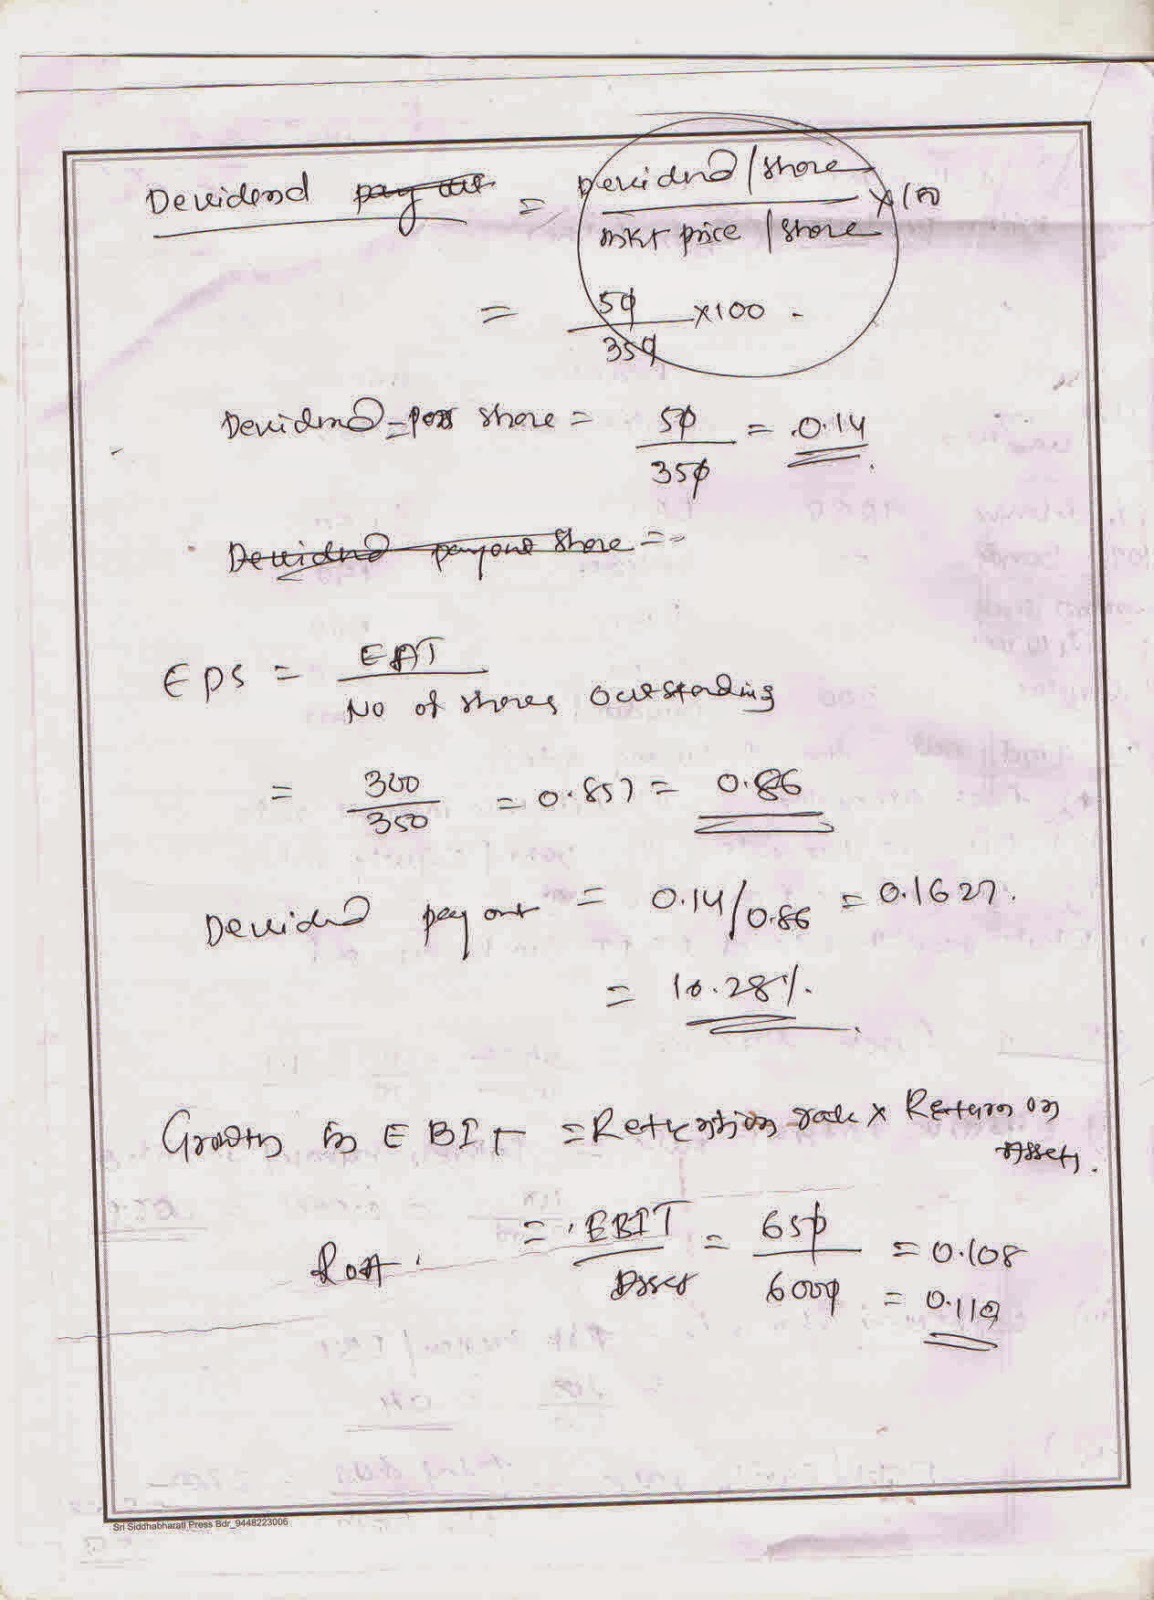 Devidend pay out = Devidend / share
mkt price / share ×100
= 50
350 ×100
Devidend = per share = 50
350 = 0.14
Devidend payout share =
EPS = EAT
No of shares outstanding
= 300
350 = 0.857 = 0.86
Devidend pay out = 0.14/0.86 = 0.1627.
= 16.28%.
Growth in EBIT = Retention rate × Return on
Assets.
ROA = EBIT
Asset = 650
6000 = 0.108
= 0.110
Sri Siddhabharati Press Bdr_9448223006